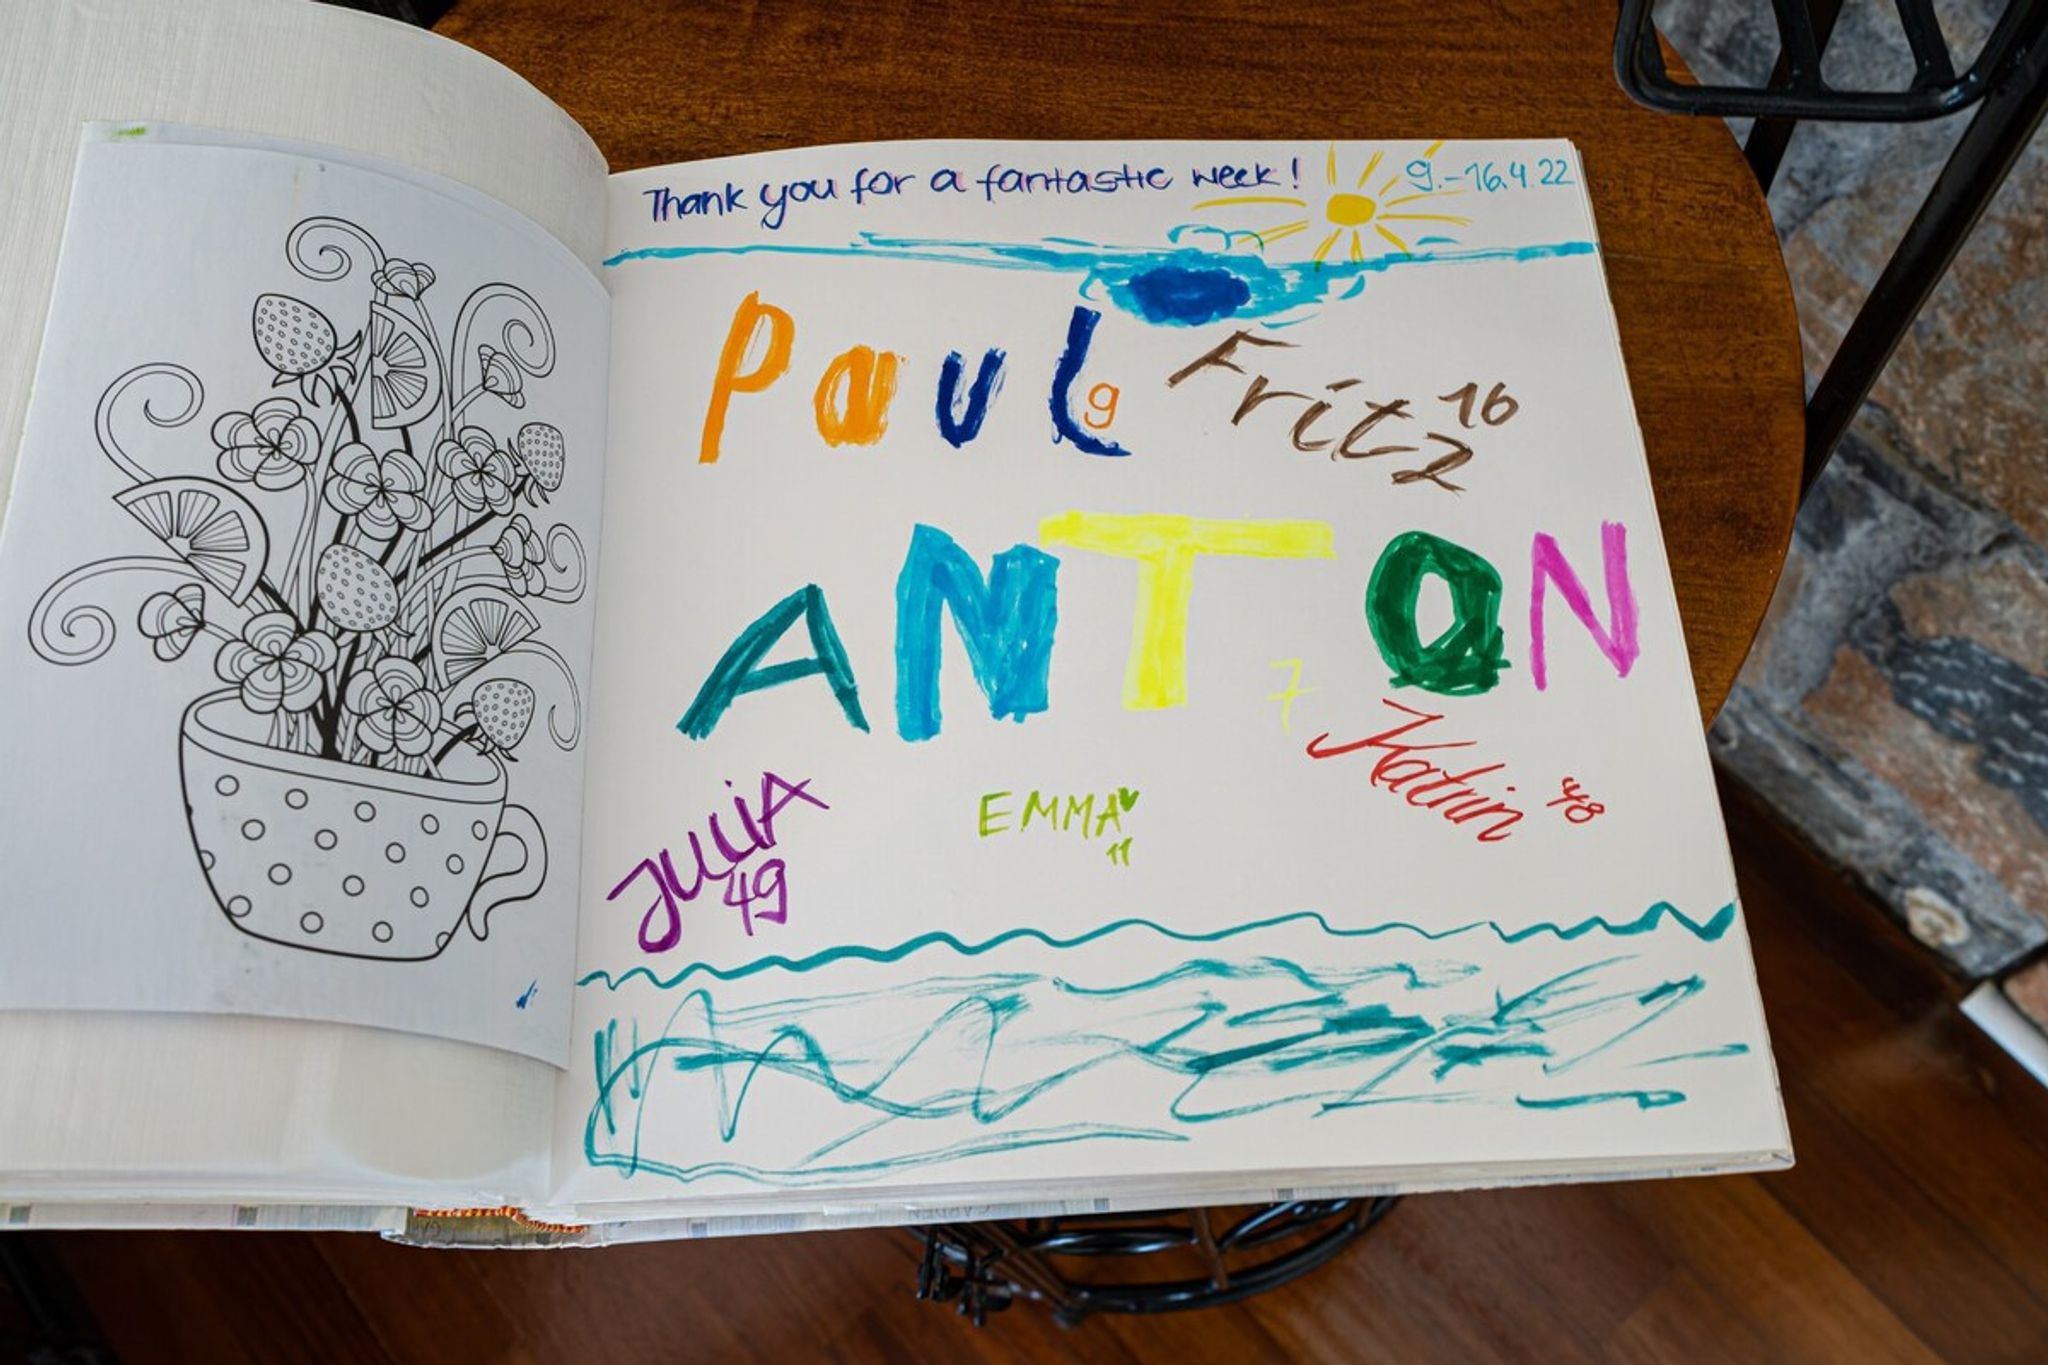 Thank you for a fantastic week! 9.-16.4.22
Paul 9
Fritz 16
ANTON 7
JULIA 49
EMMA 11
Katrin '48
GARDEN